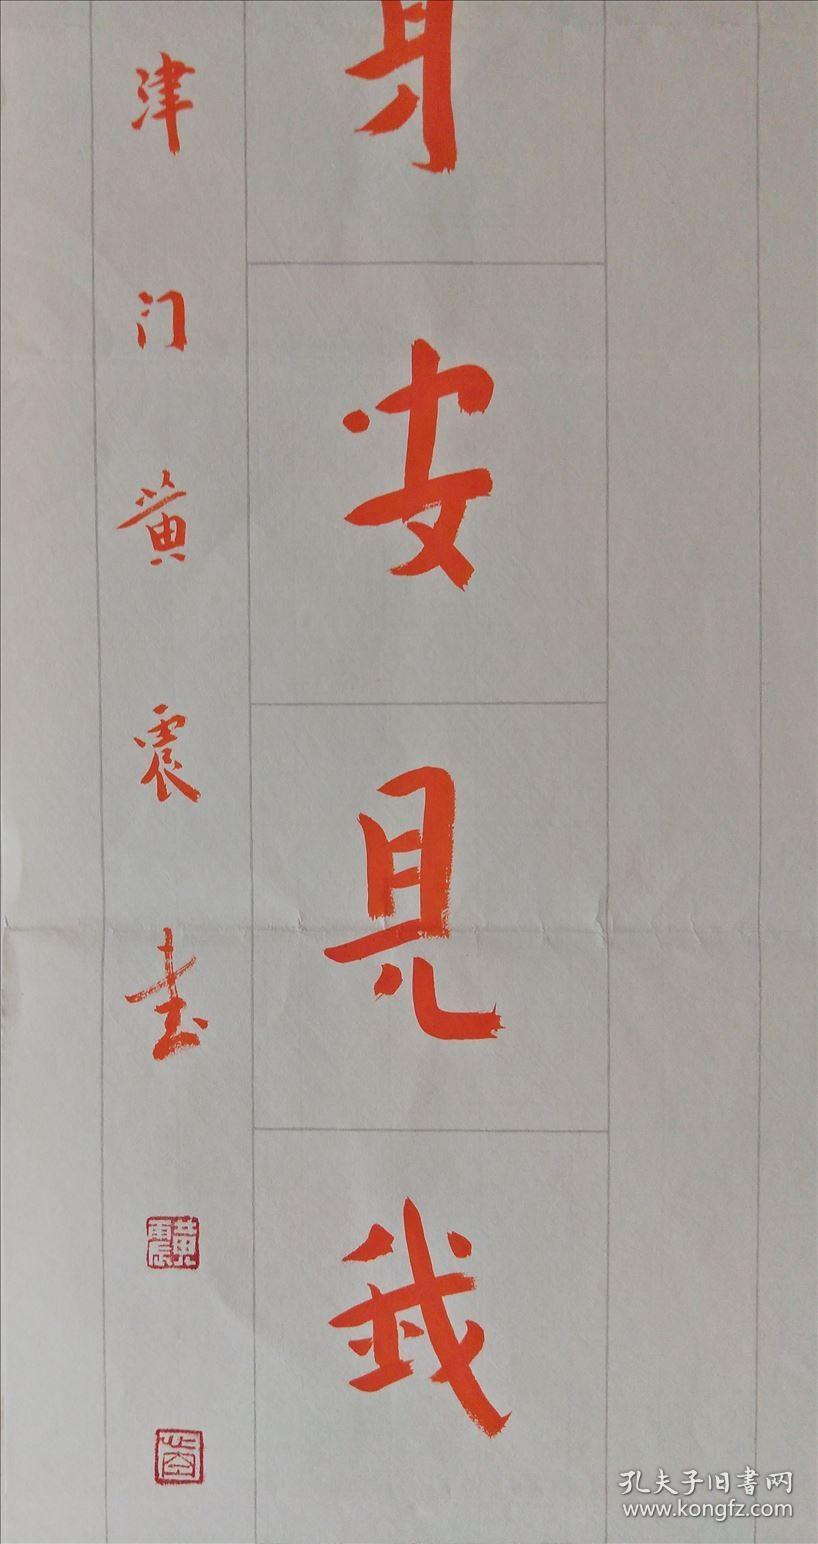 身安見我
津门黄震书
黄震
孔夫子旧书网
www.kongfz.com